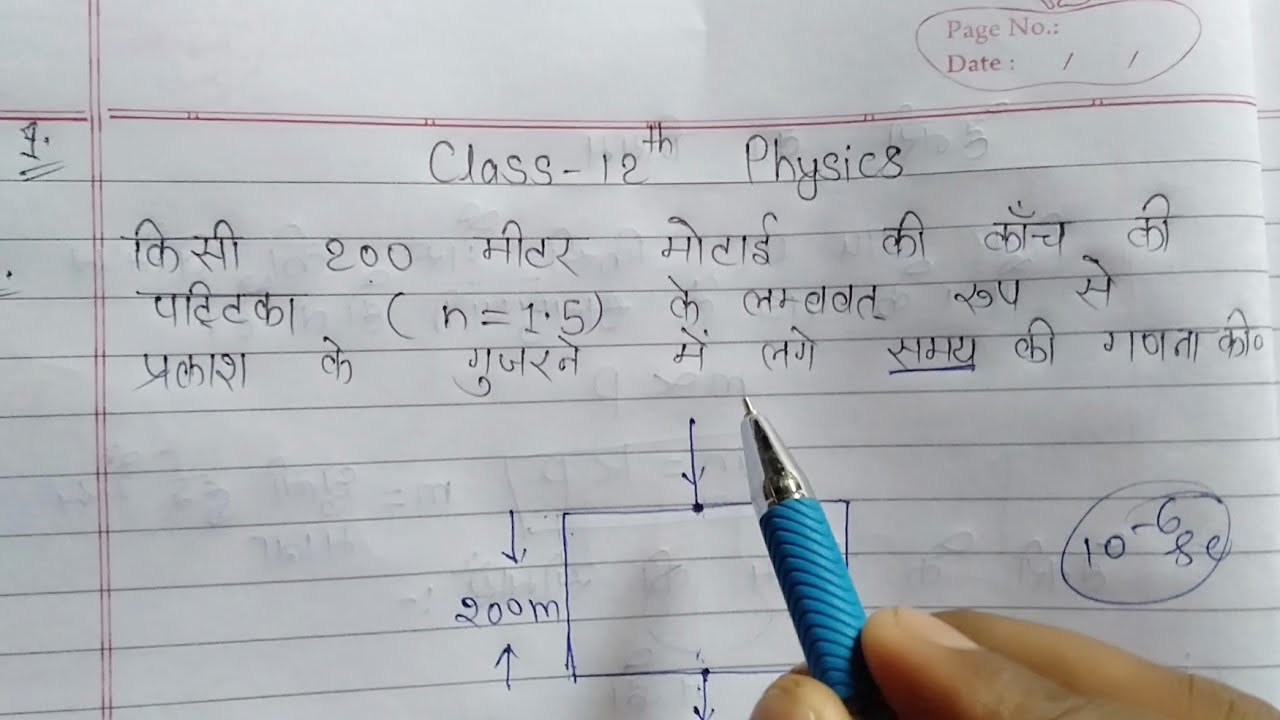 Page No.:
Date : / /
1.
Class-12th Physics
किसी 200 मीटर मोटाई की काँच की
पट्टिका ( n = 1.5) के लम्बवत् रूप से
प्रकाश के गुजरने में लगे समय की गणना की०
200m
10-6 se